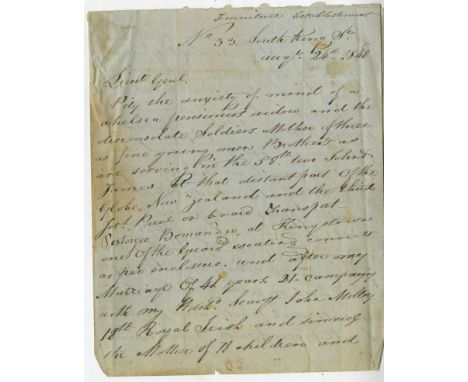 Furniture Establishment
No 33. South King St
augt. 24th 1848
Lieut Genl.
Pity the anxiety of mind of a
Chelsea pensioners widow and the
disconsolate Soldiers Mother of three
as fine young men Brothers as
are serving in the 58th two John &
James at that distant part of the
Globe, New Zealand and the third
on board Transpat
at Kingstown
one of the Guard escorting convicts
as per enclosure. and after my
Marriage Of 46 years 21 campaigns
with my Husbd. Serjt John
18th Royal Irish and since
the Mother of children and